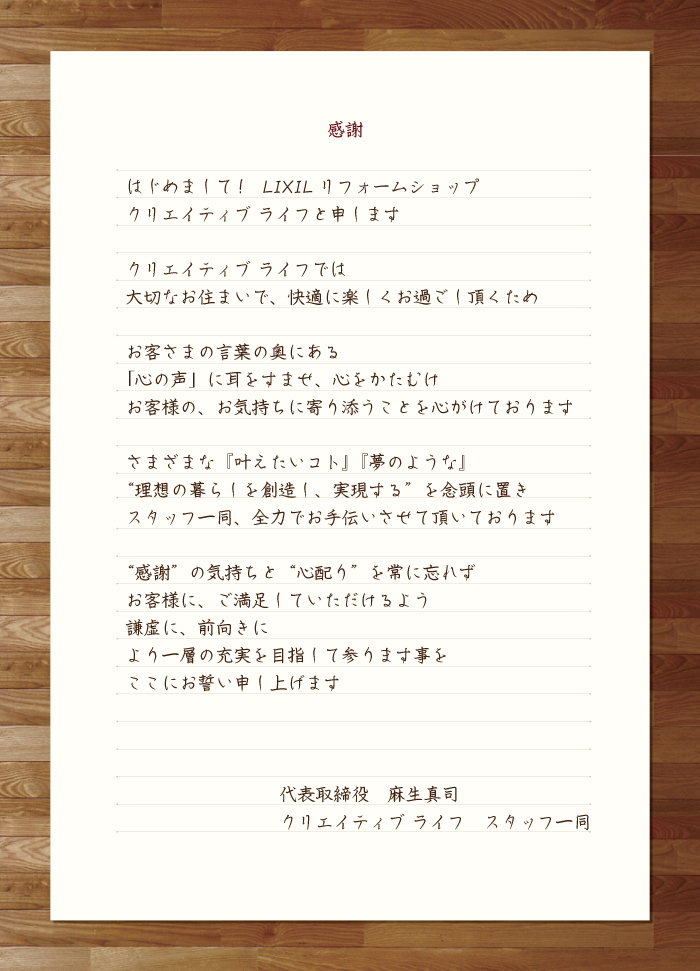 感謝
はじめまして！ LIXIL リフォームショップ
クリエイティブ ライフと申します
クリエイティブ ライフでは
大切なお住まいで、快適に楽しくお過ごし頂くため
お客さまの言葉の奥にある
「心の声」に耳をすませ、心をかたむけ
お客様の、お気持ちに寄り添うことを心がけております
さまざまな『叶えたいコト』『夢のような』
“理想の暮らしを創造し、実現する”を念頭に置き
スタッフ一同、全力でお手伝いさせて頂いております
“感謝”の気持ちと“心配り”を常に忘れず
お客様に、ご満足していただけるよう
謙虚に、前向きに
より一層の充実を目指して参ります事を
ここにお誓い申し上げます
代表取締役　麻生真司
クリエイティブ ライフ　スタッフ一同